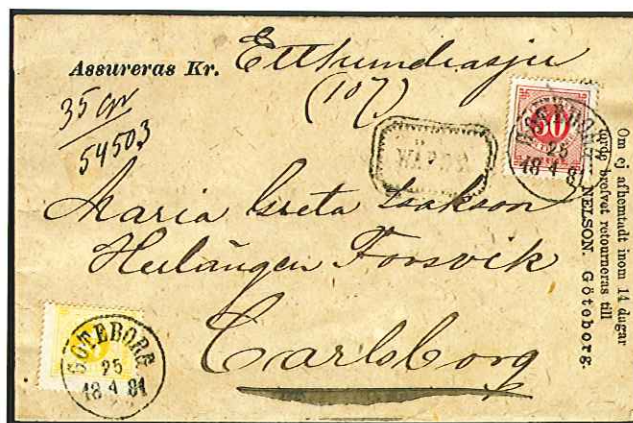 Assureras Kr. Etthundrasju
(107)
35 gr
54503
50
GÖTEBORG
25
18 4 81
Maria Greta Isakson
Forsvik
Carlsborg
GÖTEBORG
25
18 4 81
Om ej afhemtadt inom 14 dagar
torde brefvet retourneras till
NELSON. Göteborg.